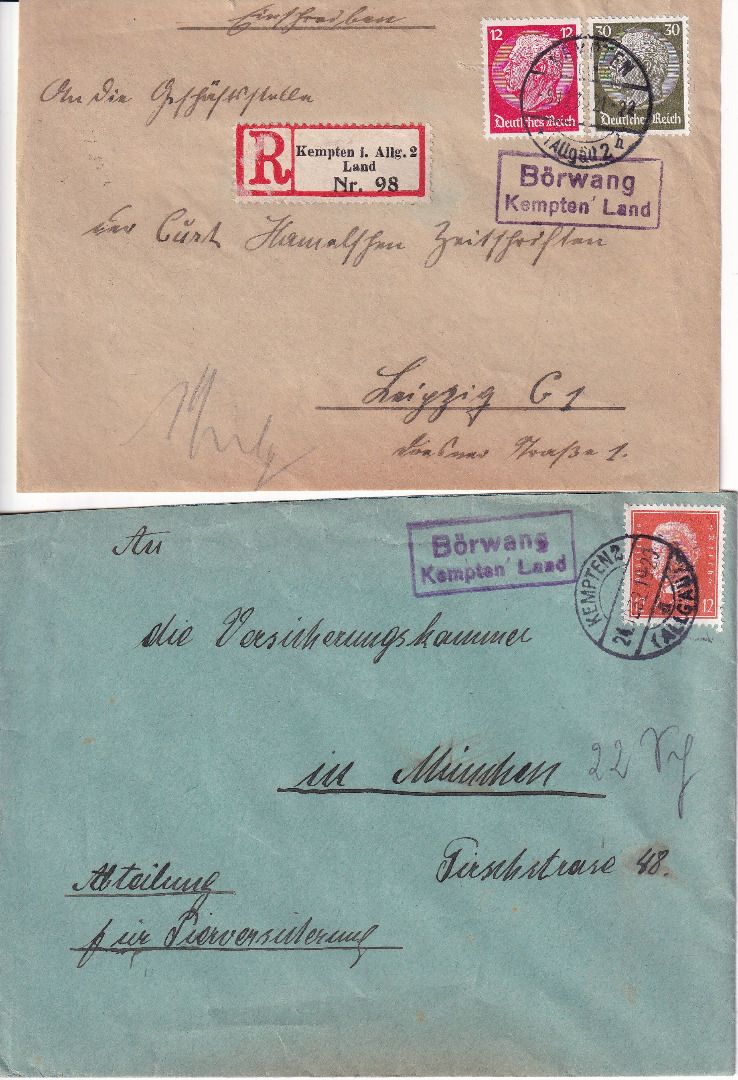 Einschreiben
12 12
30 30
Deutsches Reich
Deutsches Reich
(Allgäu) 2
h
An die Geschäftsstelle
R
Kempten i. Allg. 2
Land
Nr. 98
Börwang
Kempten' Land
der Curt Hamelschen Zeitschriften
Leipzig C 1
Straße 1.
An
Börwang
Kempten' Land
KEMPTEN 2
(ALLGÄU)
12
die Versicherungskammer
in München
22
Abteilung
48.
für